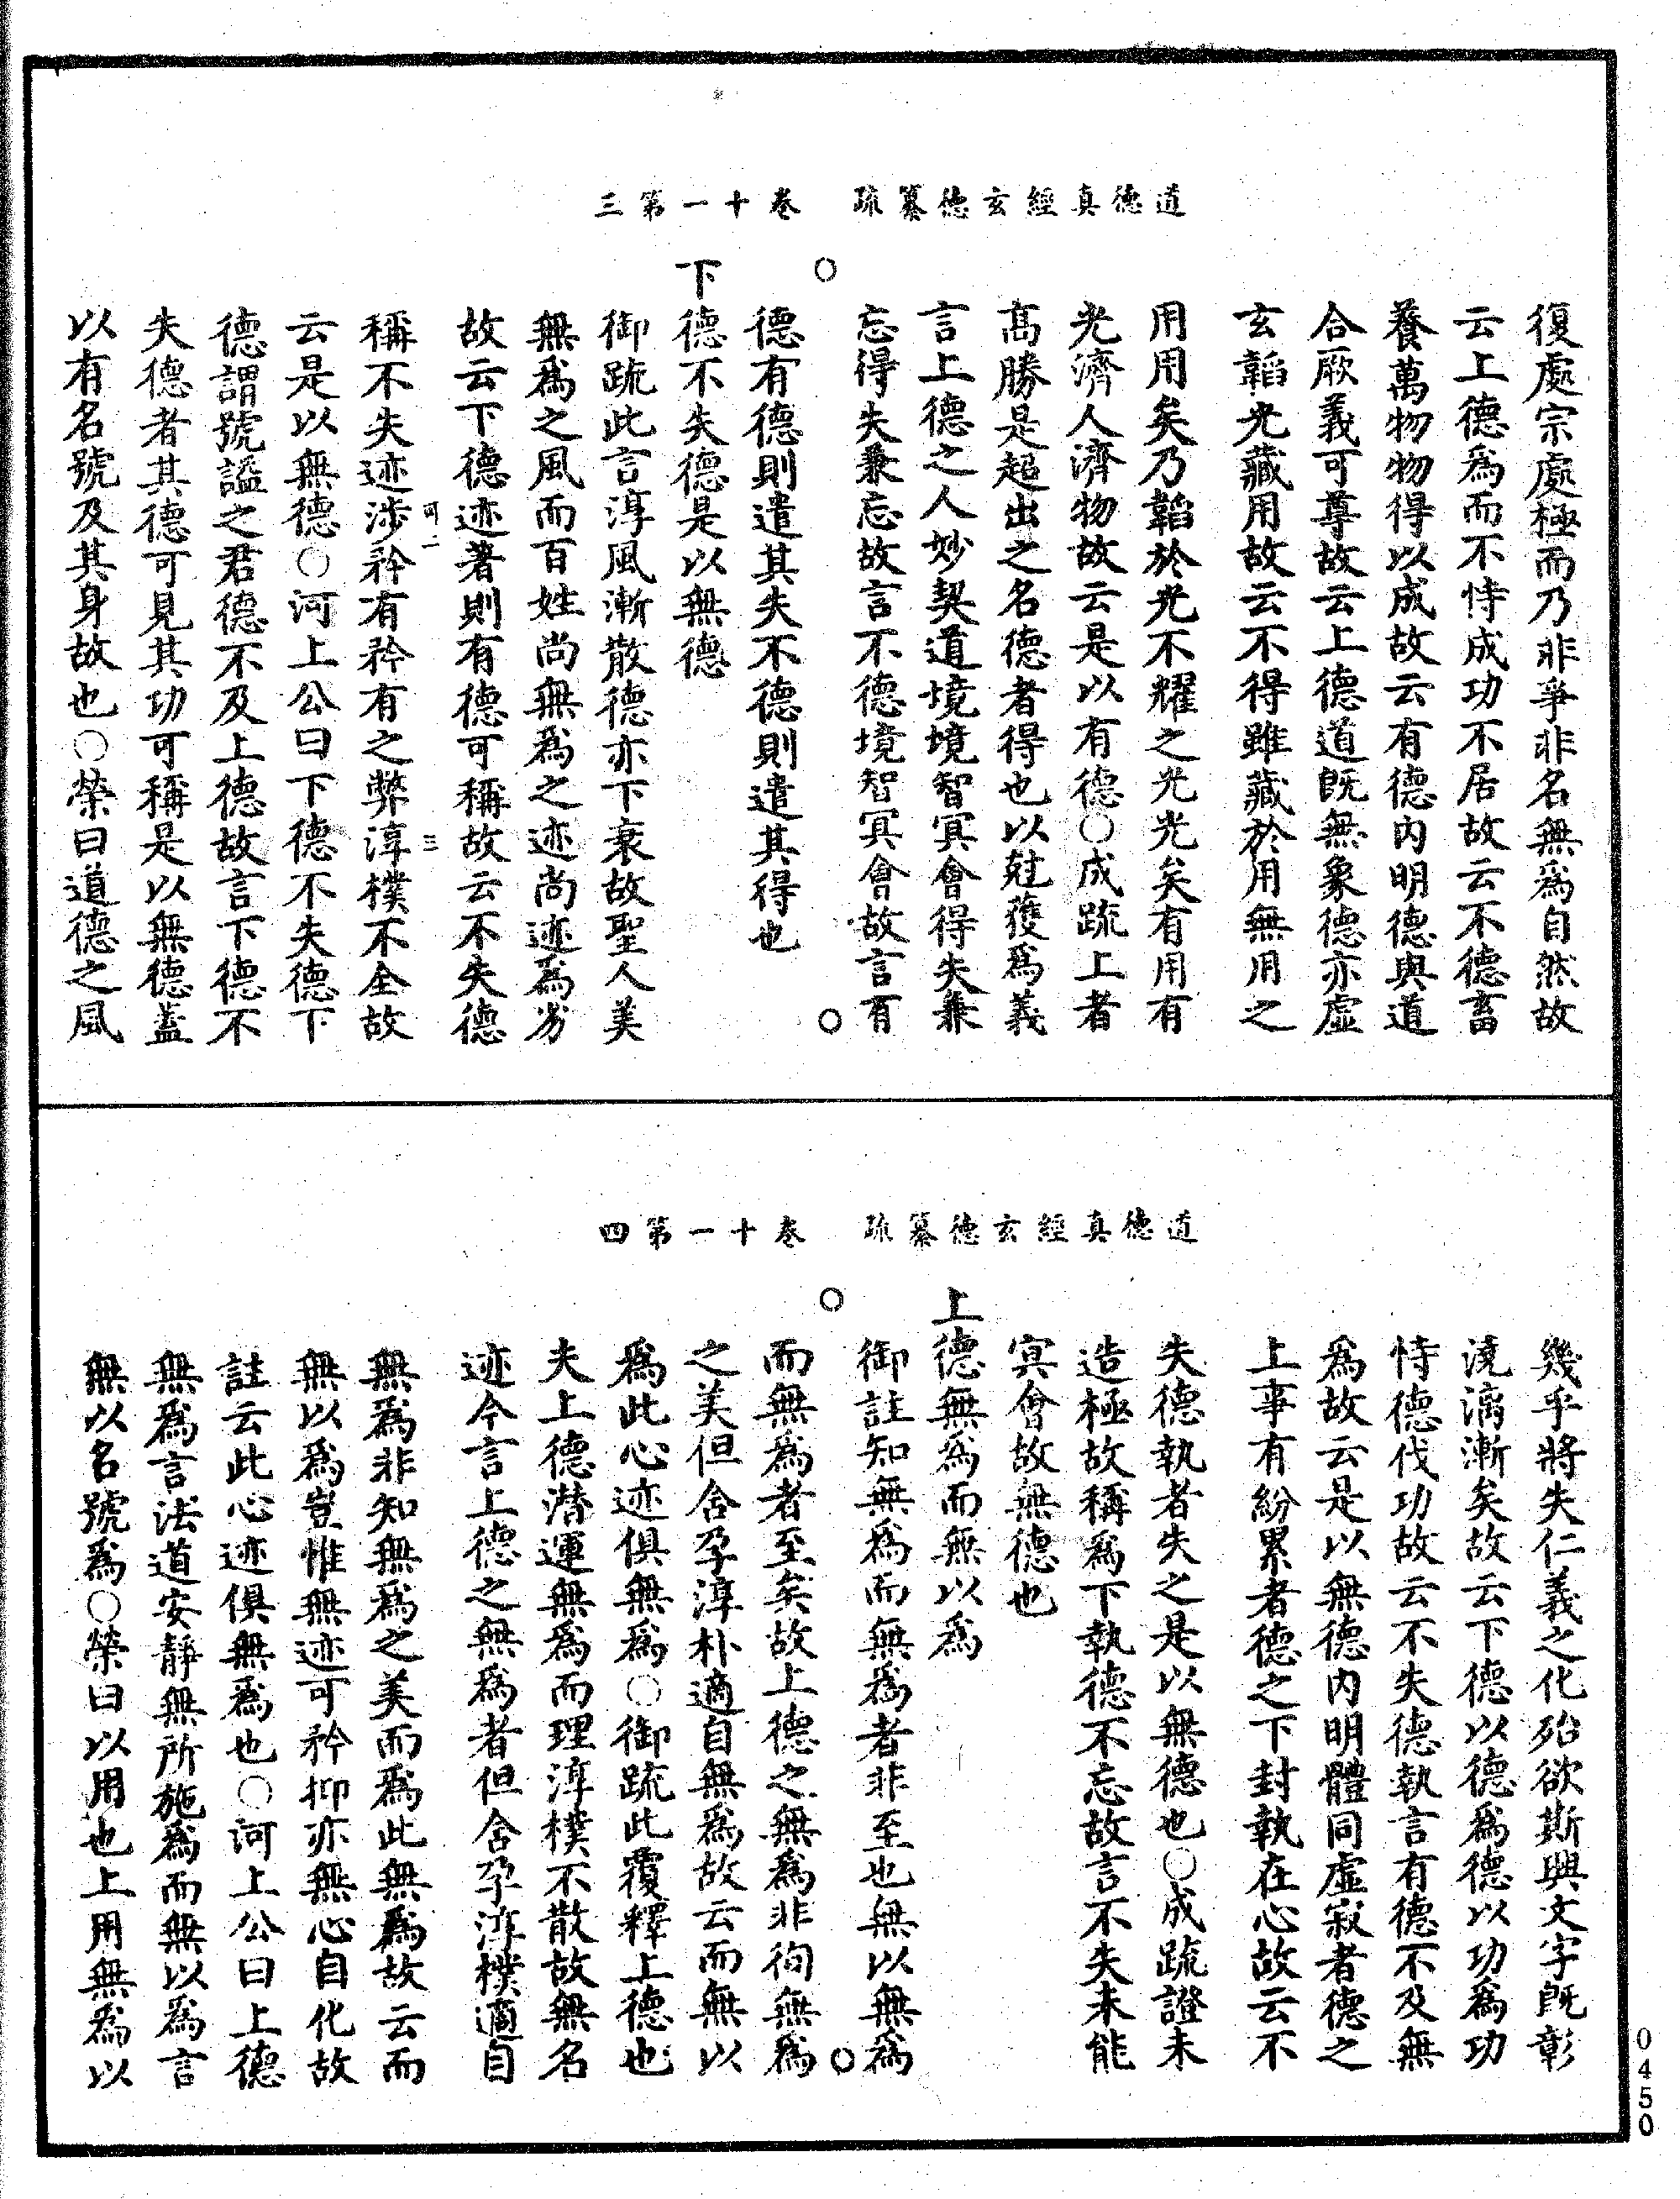 道德真經玄德纂疏　卷十一第三
復處宗處極而乃非爭非名無爲自然故
云上德爲而不恃成功不居故云不德畜
養萬物物得以成故云有德內明德與道
合厥義可尊故云上德道旣無象德亦虛
玄韜光藏用故云不得雖藏於用無用之
用用矣乃韜於光不耀之光光矣有用有
光濟人濟物故云是以有德○成䟽上者
髙勝是超出之名德者得也以尅獲爲義
言上德之人妙契道境境智冥會得失兼
忘得失兼忘故言不德境智冥會故言有
德有德則遣其失不德則遣其得也
下德不失德是以無德
御䟽此言淳風漸散德亦下衰故聖人美
無爲之風而百姓尚無爲之迹尚迹爲劣
故云下德迹著則有德可稱故云不失德
可二　三
稱不失迹涉矜有矜有之弊淳樸不全故
云是以無德○河上公曰下德不失德下
德謂號謚之君德不及上德故言下德不
失德者其德可見其功可稱是以無德蓋
以有名號及其身故也○榮曰道德之風
道德真經玄德纂疏　卷十一第四
幾乎將失仁義之化殆欲斯興文字旣彰
澆漓漸矣故云下德以德爲德以功爲功
恃德伐功故云不失德執言有德不及無
爲故云是以無德內明體同虛寂者德之
上事有紛累者德之下封執在心故云不
失德執者失之是以無德也○成䟽證未
造極故稱爲下執德不忘故言不失未能
冥會故無德也
上德無爲而無以爲
御註知無爲而無爲者非至也無以無爲
而無爲者至矣故上德之無爲非徇無爲
之美但含孕淳朴適自無爲故云而無以
爲此心迹俱無爲○御䟽此覆釋上德也
夫上德潜運無爲而理淳樸不散故無名
迹今言上德之無爲者但含孕淳樸適自
無爲非知無爲之美而爲此無爲故云而
無以爲豈惟無迹可矜抑亦無心自化故
註云此心迹俱無爲也○河上公曰上德
無爲言法道安靜無所施爲而無以爲言
無以名號爲○榮曰以用也上用無爲以
0450